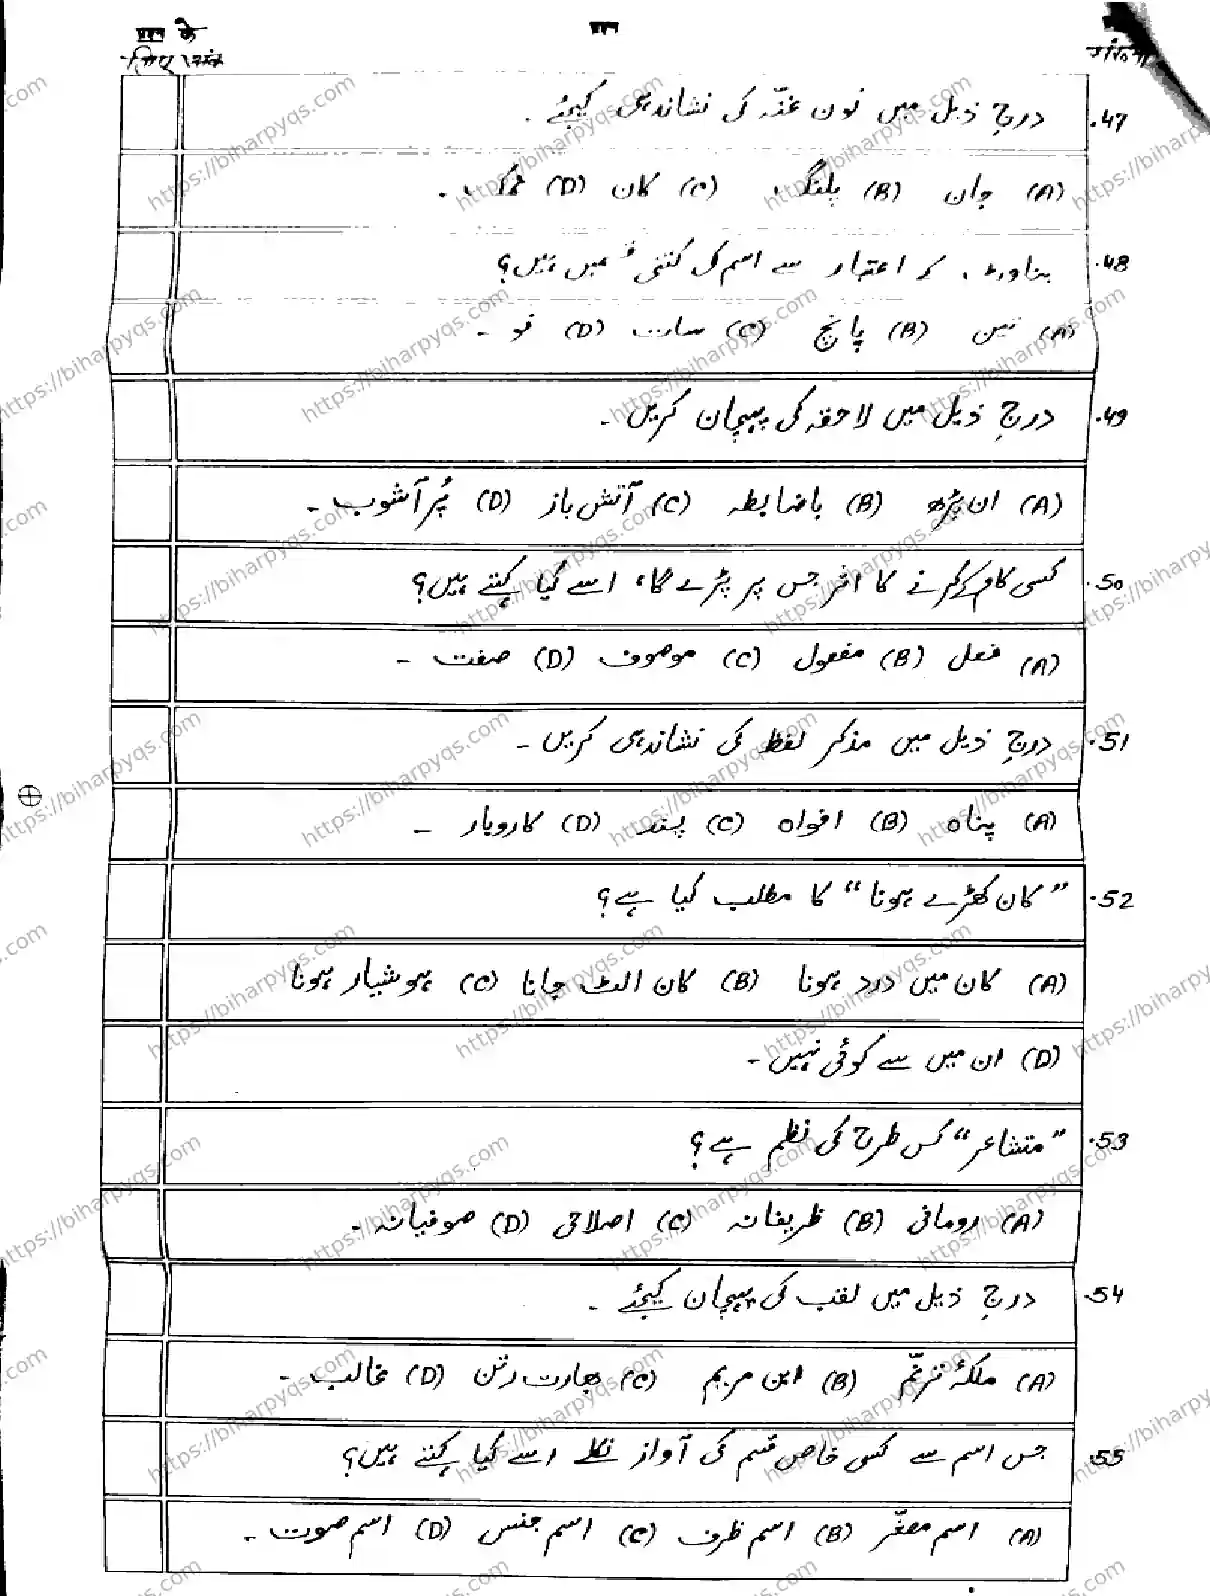 प्रश्न के
लिए अंक
प्रश्न
47. درج ذیل میں نون غنّہ کی نشاندہی کیجئے ۔
(A) جان (B) پلنگ (C) کان (D)
48. بناوٹ کے اعتبار سے اسم کی کتنی قسمیں ہیں؟
(A) تین (B) پانچ (C) سات (D) نو ۔
49. درج ذیل میں لاحقہ کی پہچان کریں ۔
(A) ان پڑھ (B) باضابطہ (C) آتش باز (D) پُر آشوب ۔
50. کسی کام کے کرنے کا اثر جس پر پڑے گا، اسے کیا کہتے ہیں؟
(A) فعل (B) مفعول (C) موصوف (D) صفت ۔
51. درج ذیل میں مذکر لفظ کی نشاندہی کریں ۔
(A) پناہ (B) افواہ (C) پسند (D) کاروبار ۔
52. "کان کھڑے ہونا" کا مطلب کیا ہے؟
(A) کان میں درد ہونا (B) کان الٹ جانا (C) ہوشیار ہونا
(D) ان میں سے کوئی نہیں ۔
53. "متشاعر" کس طرح کی نظم ہے؟
(A) رومانی (B) ظریفانہ (C) اصلاحی (D) صوفیانہ ۔
54. درج ذیل میں لقب کی پہچان کیجئے ۔
(A) ملکۂ ترنّم (B) ابن مریم (C) بھارت رتن (D) غالب ۔
55. جس اسم سے کسی خاص قسم کی آواز نکلے اسے کیا کہتے ہیں؟
(A) اسم مصغّر (B) اسم ظرف (C) اسم جنس (D) اسم صوت ۔
https://biharpyqs.com